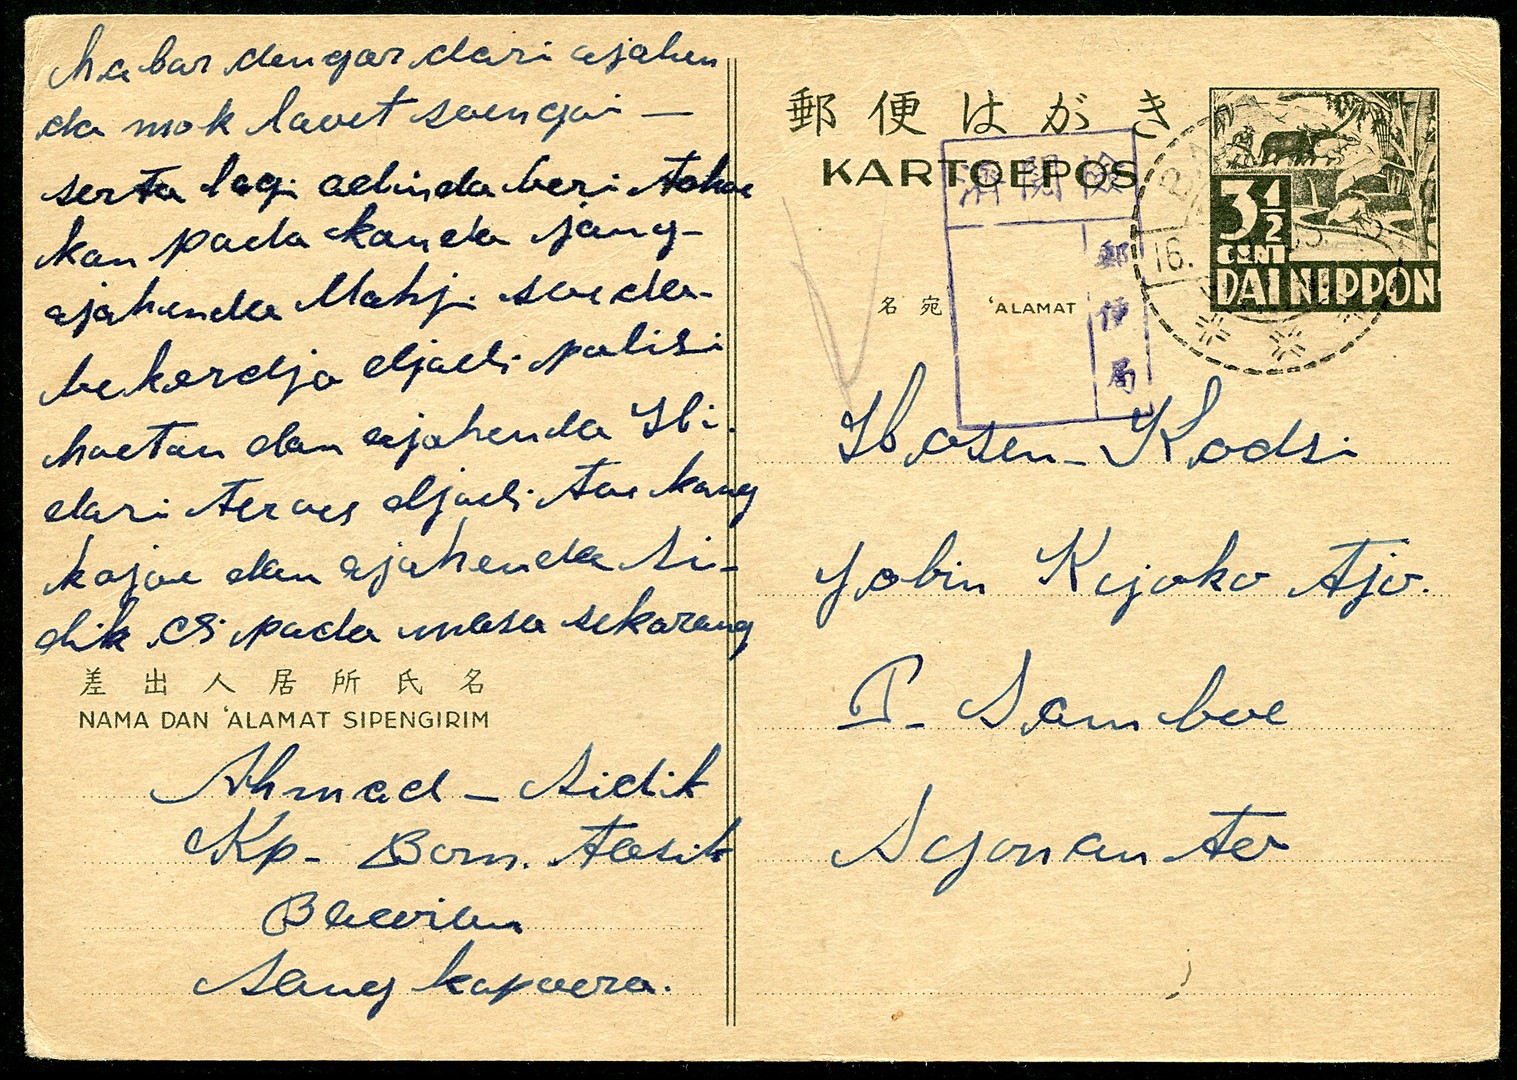 habar dengar dari ajahen
da mok laoet soengai —
serta lagi adinda beri tahoe
kan pada kanda jang-
ajahenda Mahji soeda-
bekerdja djadi polisi
hoetan dan ajahenda Ibi.
dari teroes djadi toekang
kajoe dan ajahenda Si-
dik di pada masa sekarang
差出人居所氏名
NAMA DAN 'ALAMAT SIPENGIRIM
Ahmad - Sidik
Kp- Bom. Tasik
Bawean
Sangkapoera.
郵便はがき
KARTOEPOS
3½
CENT
DAI NIPPON
16.
検閲済
郵便局
名宛 'ALAMAT
Hosen - Kodsi
Jobin Kyoko Tjo.
P- Samboe
Syonan to